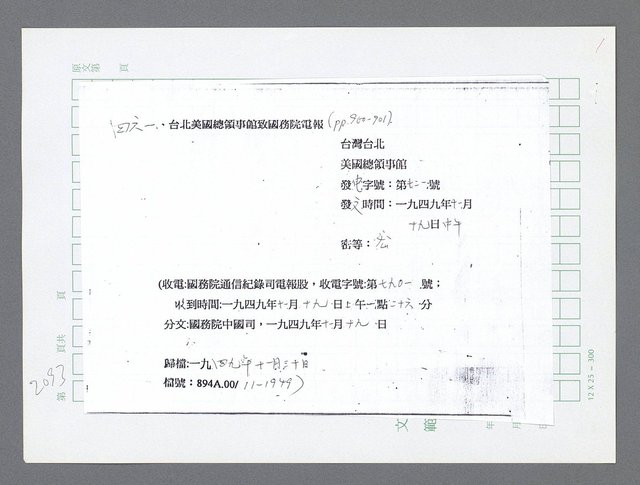 原文第 頁
四六一、台北美國總領事館致國務院電報(pp.900-901)
台灣台北
美國總領事館
發電字號：第七二一號
發文時間：一九四九年十一月
十九日中午
密等：密
(收電:國務院通信紀錄司電報股，收電字號:第七九〇一號；
收到時間:一九四九年十一月十九日上午一點二十六分
分文:國務院中國司，一九四九年十一月十九日
歸檔:一九四九年十一月三十日
檔號：894A.00/11-1949)
第 頁共 頁
2093
12 X 25 - 300
文 範 年 月 日